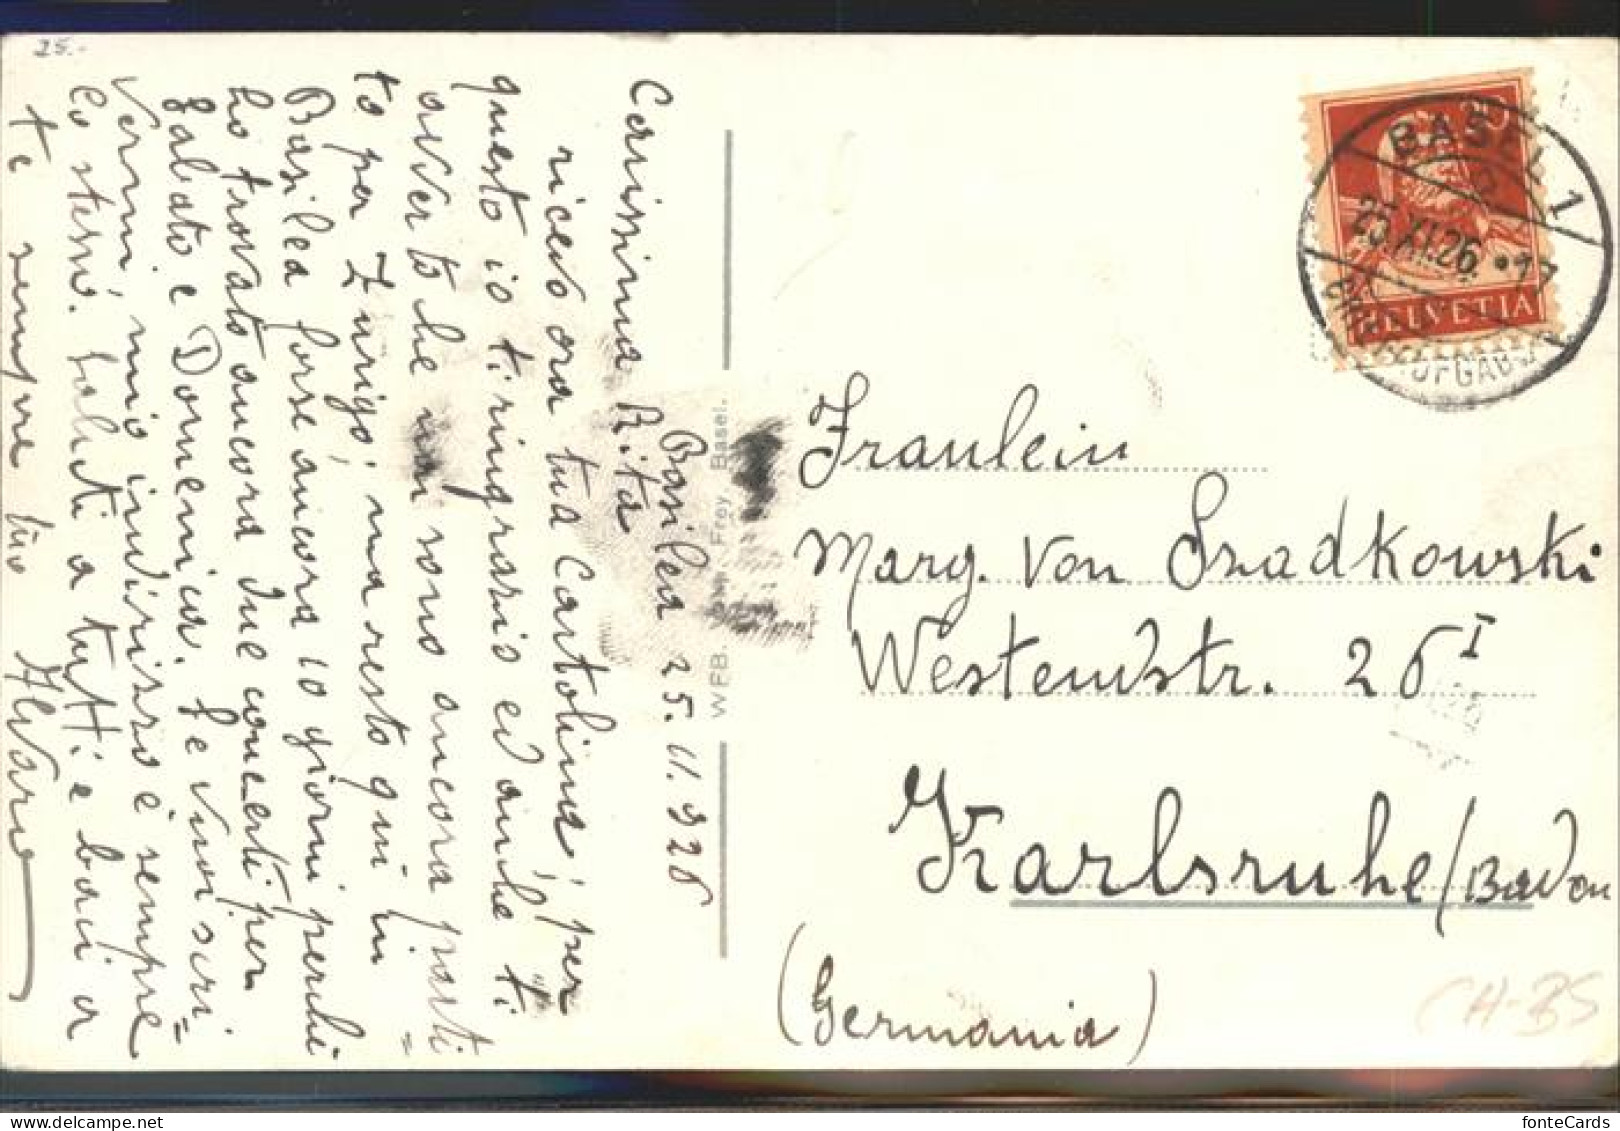 25.-
Basilea 25.11.926
Carissima Rita
ricevo ora tua Cartolina, per
questo io ti ringrazio ed anche ti
avverto che non sono ancora parti=
to per Zurigo, ma resto qui in
Basilea forse ancora 10 giorni perchè
ho trovato ancora due concerti per
Sabato e Domenica. Se vuoi scri=
vermi, mio indirizzo è sempre
lo stesso. Saluti a tutti e baci a
te sempre tuo Alvaro
WFB. Frey Basel.
20
HELVETIA
BASEL 1
25.XI.26
Fraulein
Marg. von Szadkowski
Westendstr. 26 I
Karlsruhe/Baden
(Germania)
CH-BS
fonteCards